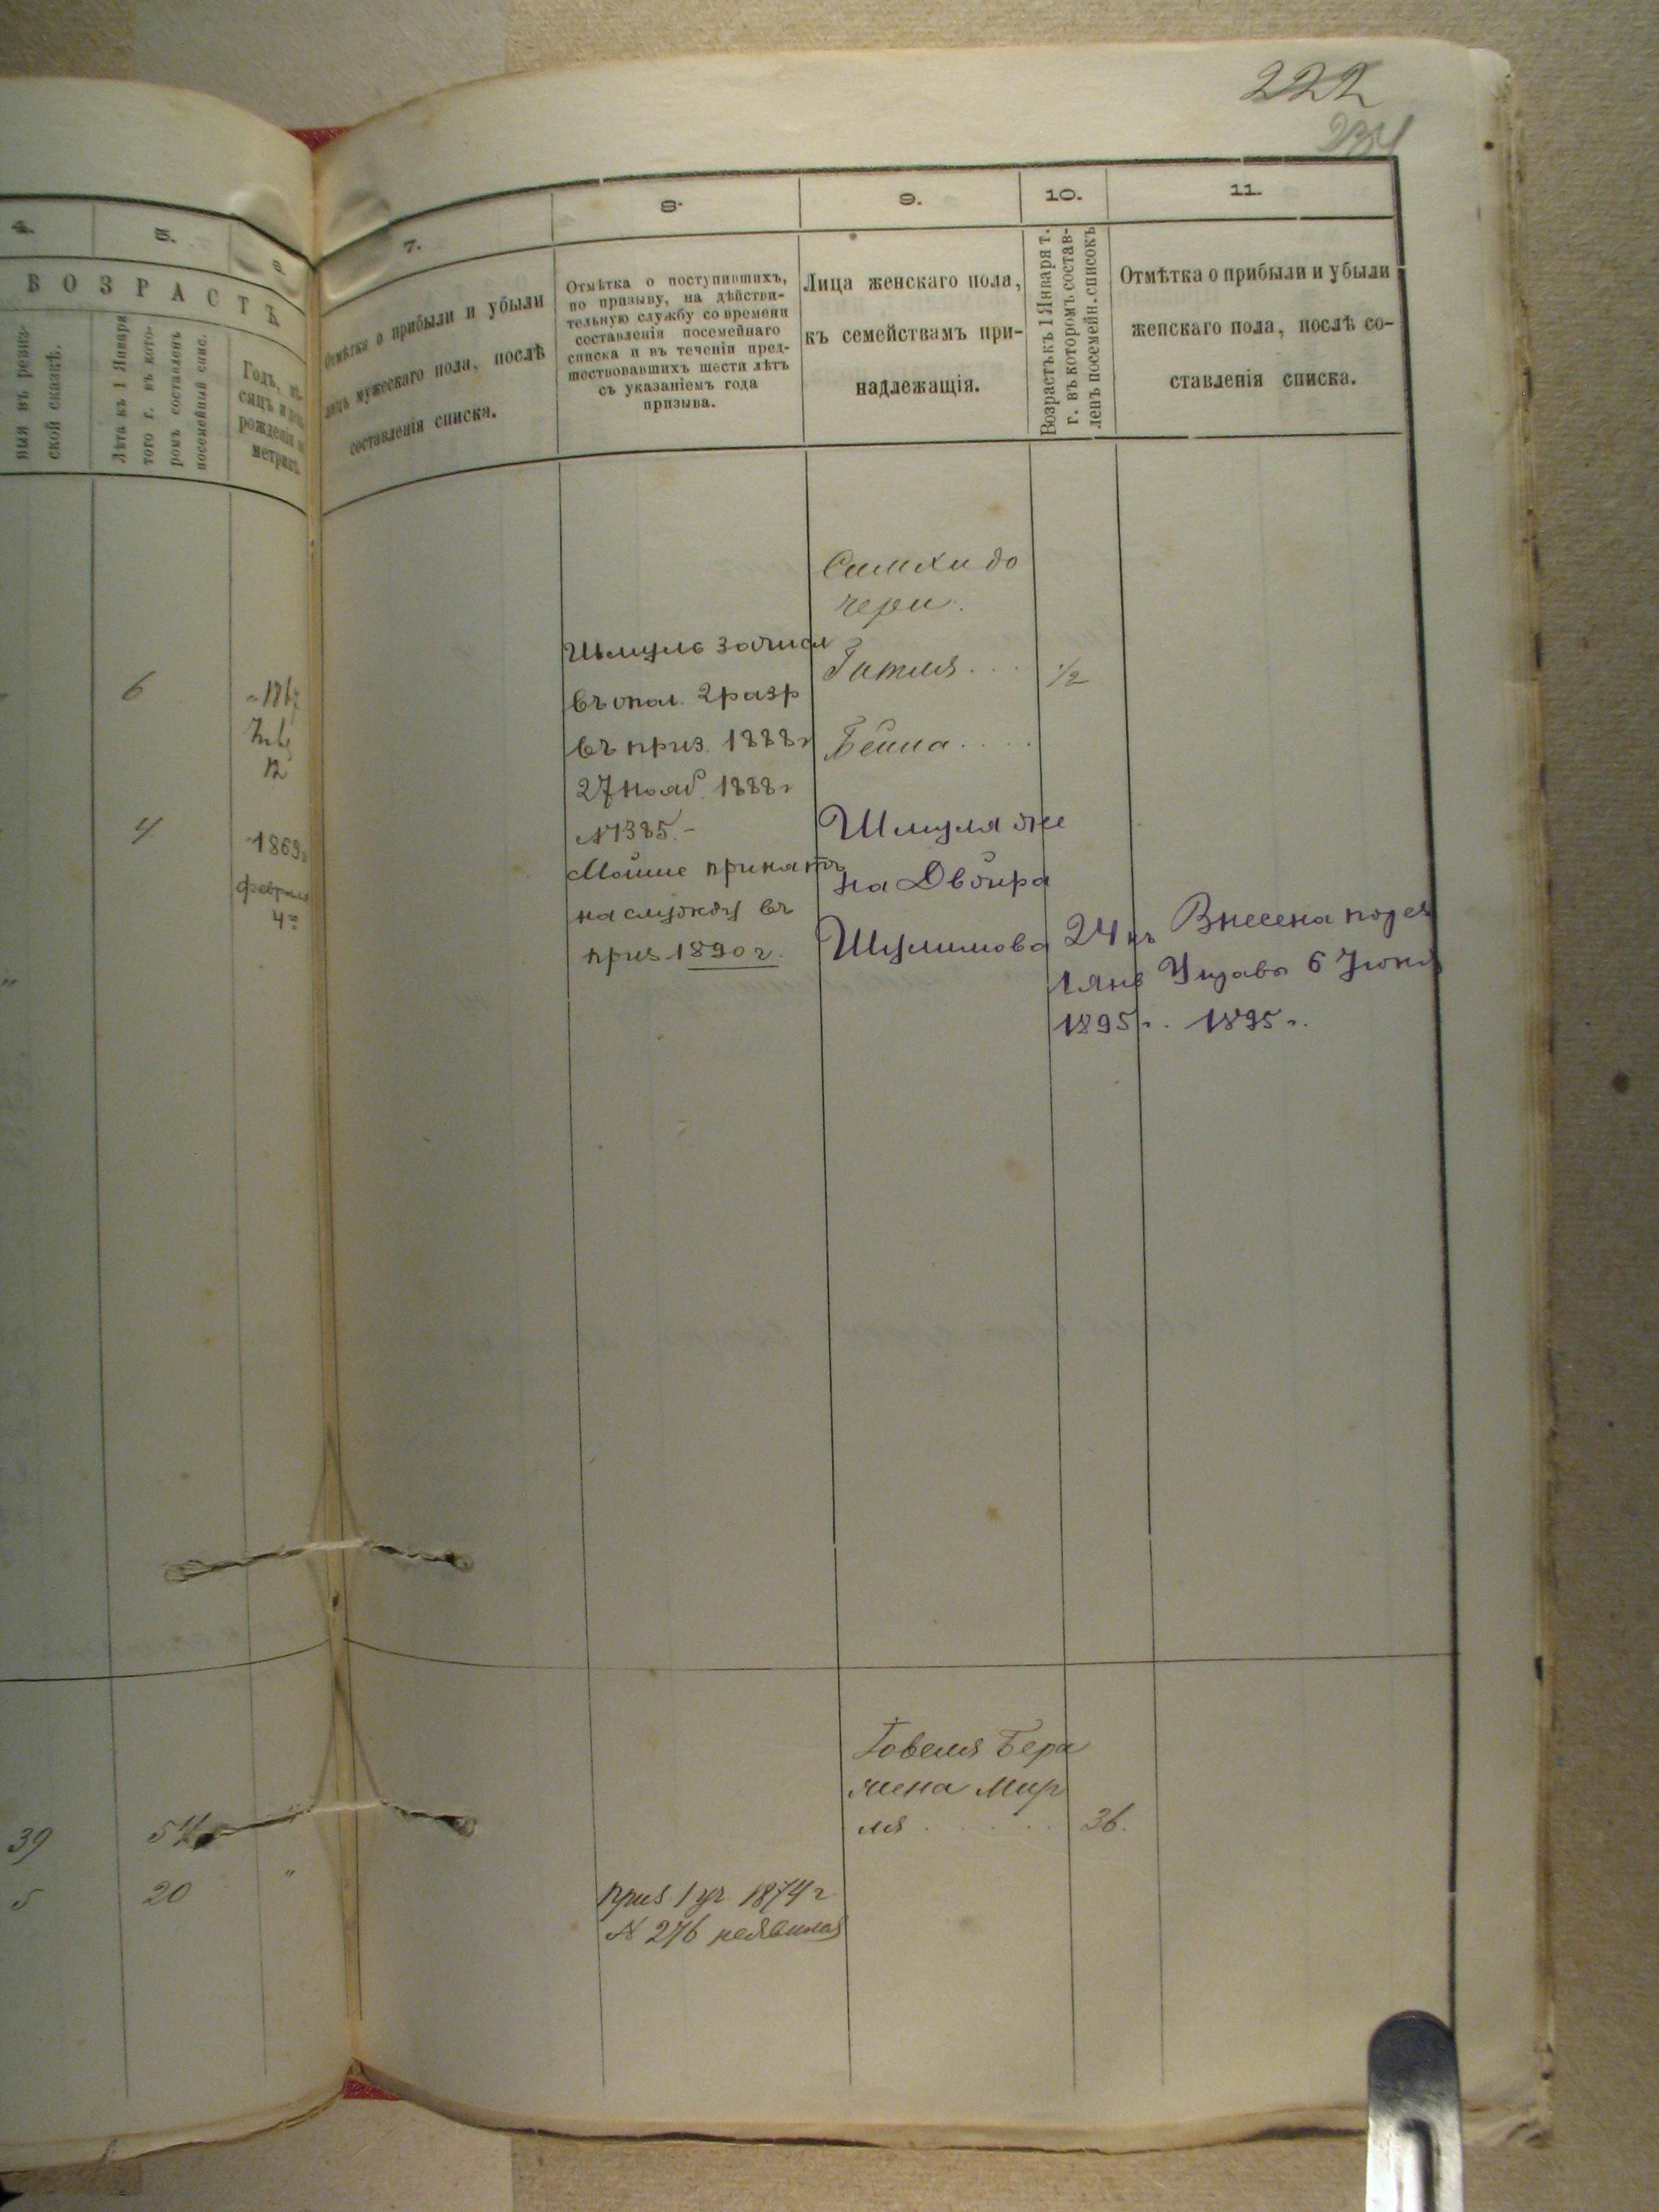 222
4.
5.
6.
7.
8.
9.
10.
11.
ВОЗРАСТЪ
ныя въ ревиз-
ской сказкѣ.
Лѣта къ 1 Января
того г. въ кото-
ромъ составленъ
посемейный спис.
Годъ, мѣ-
сяцъ и день
рожденія по
метрик.
Отмѣтка о прибыли и убыли
лицъ мужескаго пола, послѣ
составленія списка.
Отмѣтка о поступившихъ,
по призыву, на дѣйстви-
тельную службу со времени
составленія посемейнаго
списка и въ теченіи пред-
шествовавшихъ шести лѣтъ
съ указаніемъ года
призыва.
Лица женскаго пола,
къ семействамъ при-
надлежащія.
Возрастъ къ 1 Января т.
г. въ которомъ состав-
ленъ посемейн. списокъ
Отмѣтка о прибыли и убыли
женскаго пола, послѣ со-
ставленія списка.
6
1867
12
4
1869
февраля
4
Шмуль зачисл
въ опол. 2 разр
въ приз. 1888 г
27 нояб. 1888 г
№ 1385.-
Мошие принятъ
на службу въ
приз 1890 г.
Симхи до
чери.
Гитля . . . 1/2
Бейла . . . .
Шмуля же
на Двойра
Шулимова
24 къ
1 янв
1895 г.
Внесена по
6 Іюня
1895 г.
Товеля Бера
жена Мир
ля . . . . . 36.
39 54
5 20 "
приз 1 уч 1874 г
№ 276 неявился